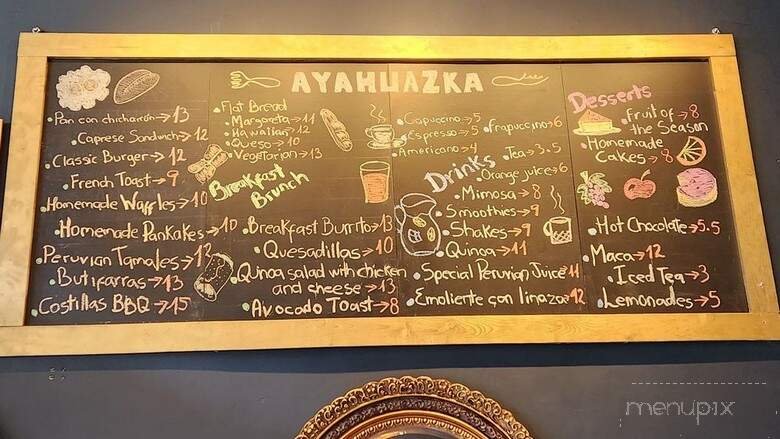 AYAHUAZKA
Pan con chicharrón → 13
Caprese Sandwich → 12
Classic Burger → 12
French Toast → 9
Homemade Waffles → 10
Homemade Pankakes → 10
Peruvian Tamales → 12
Butifarras → 13
Costillas BBQ → 15
Flat Bread
Margareta → 11
Hawaiian → 12
Queso → 10
Vegetarian → 13
Breakfast
Brunch
Breakfast Burrito → 13
Quesadillas → 10
Quinoa salad with chicken
and cheese → 13
Avocado Toast → 8
Capuccino → 5
Espresso → 5
Frapuccino → 6
Americano → 4
Drinks
Tea → 3.5
Orange juice → 6
Mimosa → 8
Smoothies → 9
Shakes → 9
Quinoa → 11
Special Peruvian Juice 11
Emoliente con linaza → 12
Desserts
Fruit of → 8
the Season
Homemade
Cakes → 8
Hot Chocolate → 5.5
Maca → 12
Iced Tea → 3
Lemonades → 5
menupix